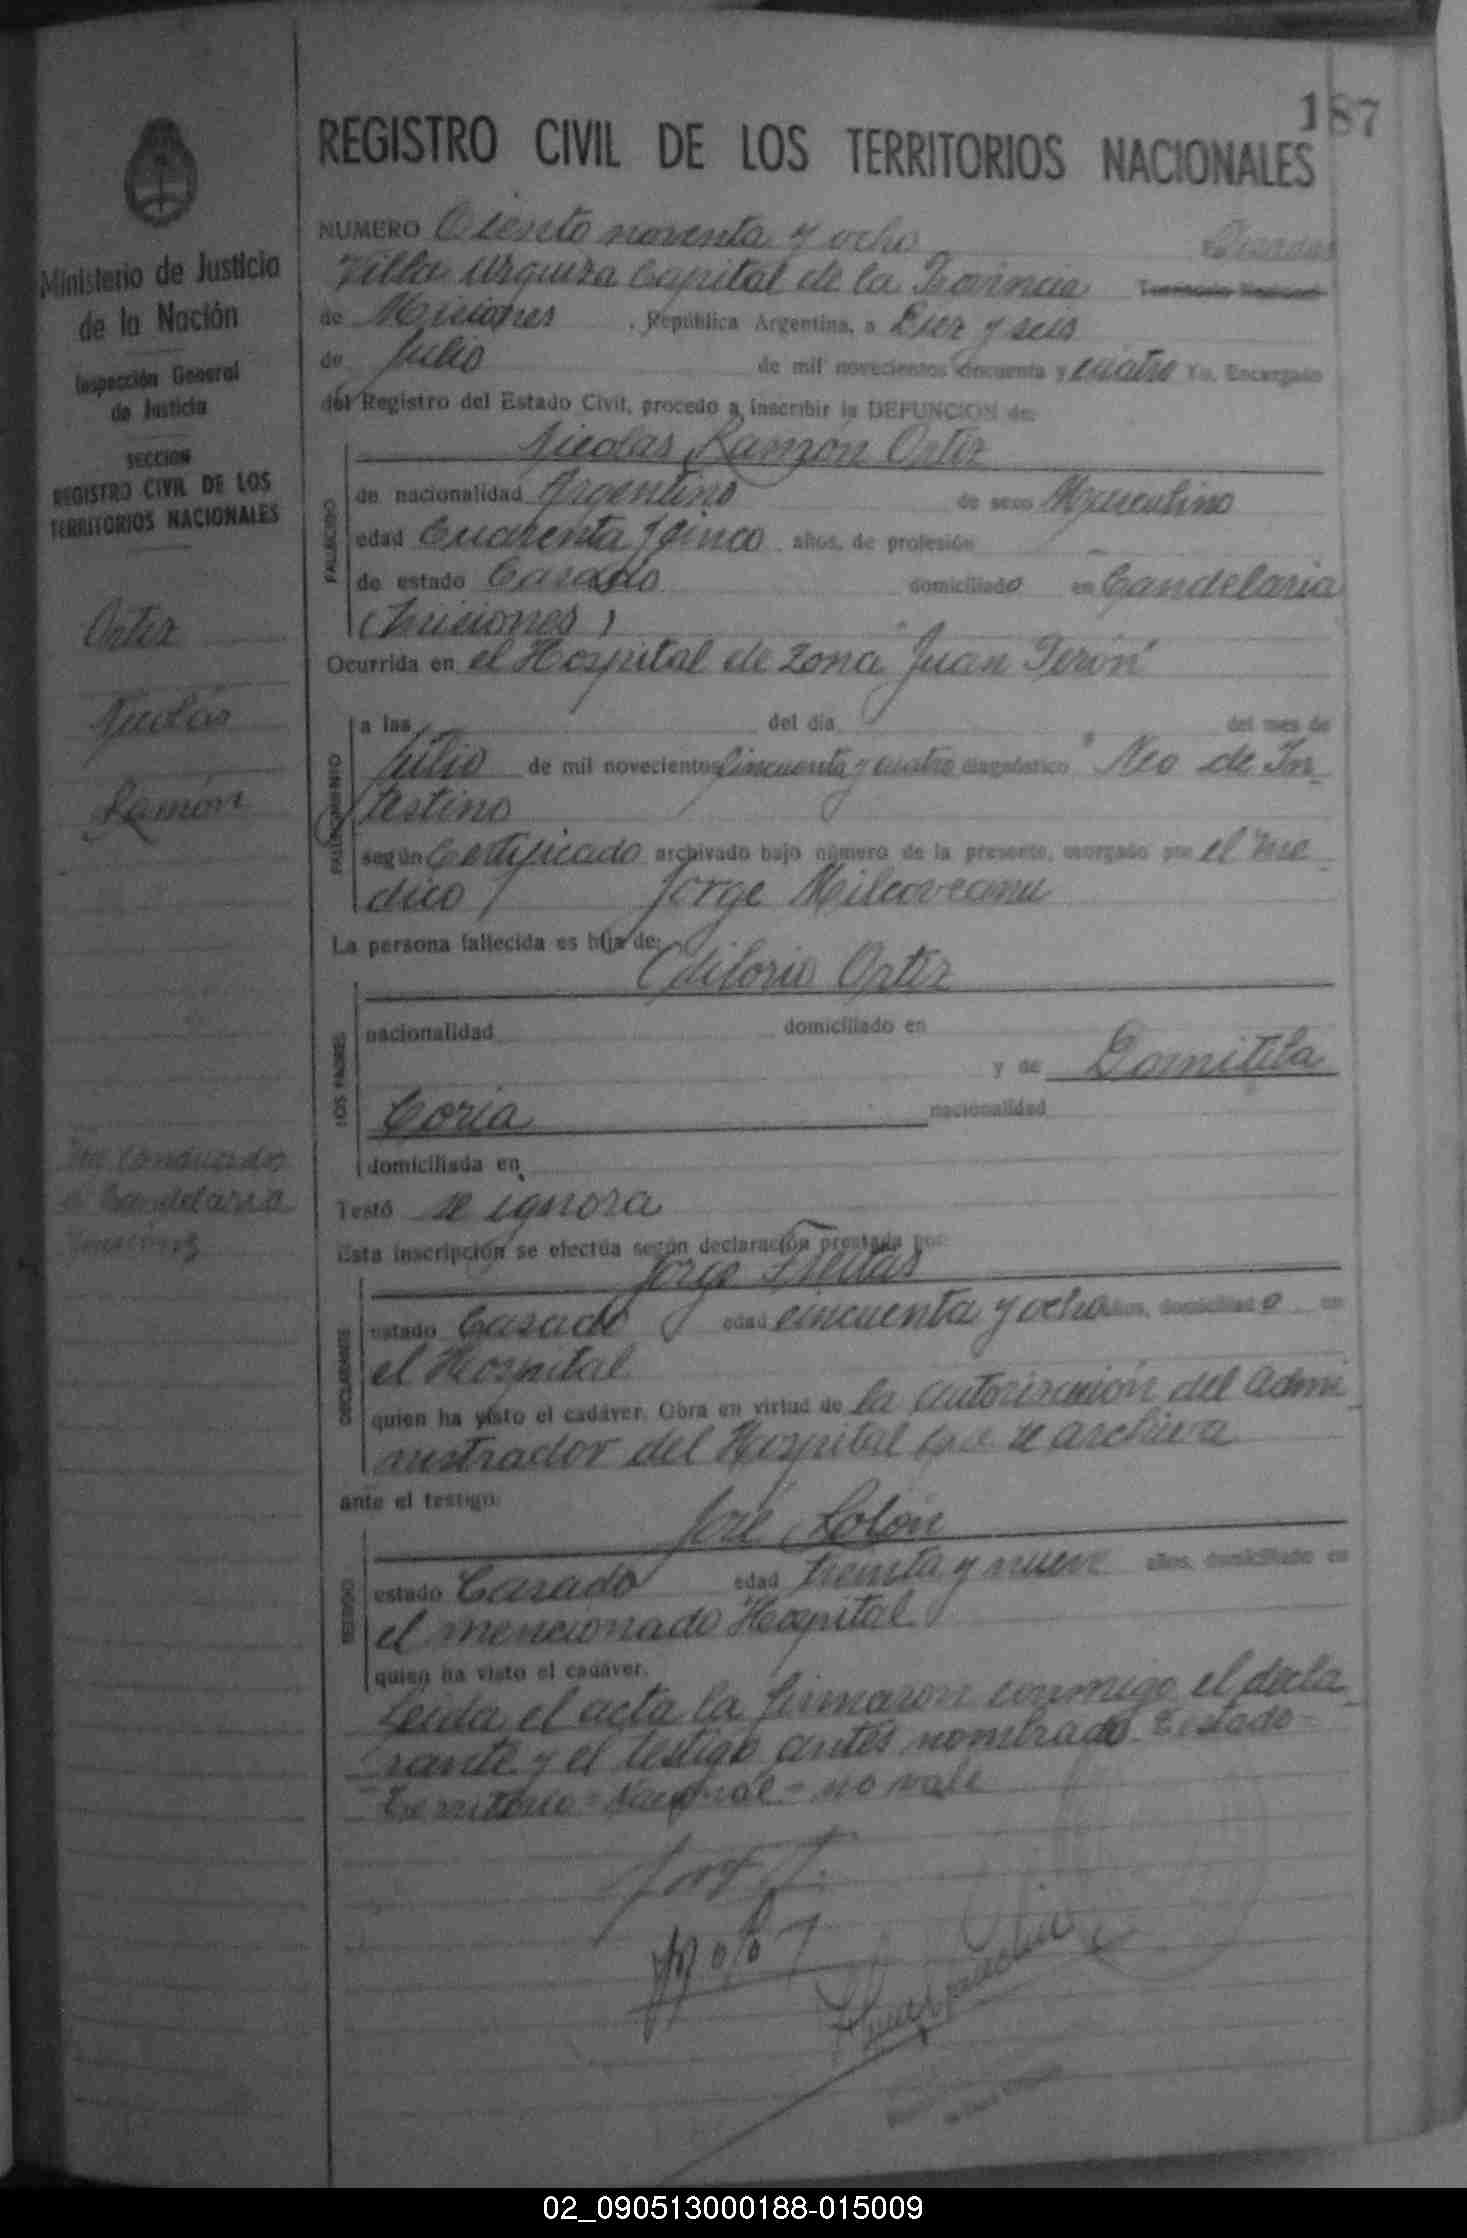 187
REGISTRO CIVIL DE LOS TERRITORIOS NACIONALES
Ministerio de Justicia
de la Nación
Inspección General
de Justicia
SECCION
REGISTRO CIVIL DE LOS
TERRITORIOS NACIONALES
Ortiz
Nicolás
Ramón
Candelaria
Misiones
NUMERO Ciento noventa y ocho
Villa Urquiza Capital de la Provincia Territorio Nacional
de Misiones, República Argentina, a Diez y seis
de Julio de mil novecientos cincuenta y cuatro Yo, Encargado
del Registro del Estado Civil, procedo a inscribir la DEFUNCION de:
Nicolas Ramon Ortiz
FALLECIDO
de nacionalidad Argentino de sexo Masculino
edad Cuarenta y Cinco años, de profesión
de estado Casado domiciliado en Candelaria
(Misiones)
Ocurrida en el Hospital de Zona "Juan Perón"
FALLECIMIENTO
a las del día del mes de
Julio de mil novecientos Cincuenta y cuatro diagnóstico "Neo de In-
testino
según Certificado archivado bajo número de la presente, otorgado por el me-
dico Jorge Milcoveanu
La persona fallecida es hija de:
Odilorio Ortiz
LOS PADRES
nacionalidad domiciliado en
y de Domitila
Coria nacionalidad
domiciliada en
Testó se ignora
Esta inscripción se efectúa según declaración prestada por:
Jorge Freitas
DECLARANTE
estado Casado edad cincuenta y ocho años, domiciliado en
el Hospital
quien ha visto el cadáver. Obra en virtud de la autorización del Admi-
nistrador del Hospital que se archiva
ante el testigo:
José Lolon
TESTIGO
estado Casado edad treinta y nueve años, domiciliado en
el mencionado Hospital
quien ha visto el cadáver.
Leida el acta la firmaron conmigo el decla-
rante y el testigo antes nombrado. Testado
Territorio = Nacional = no vale
02_090513000188-015009